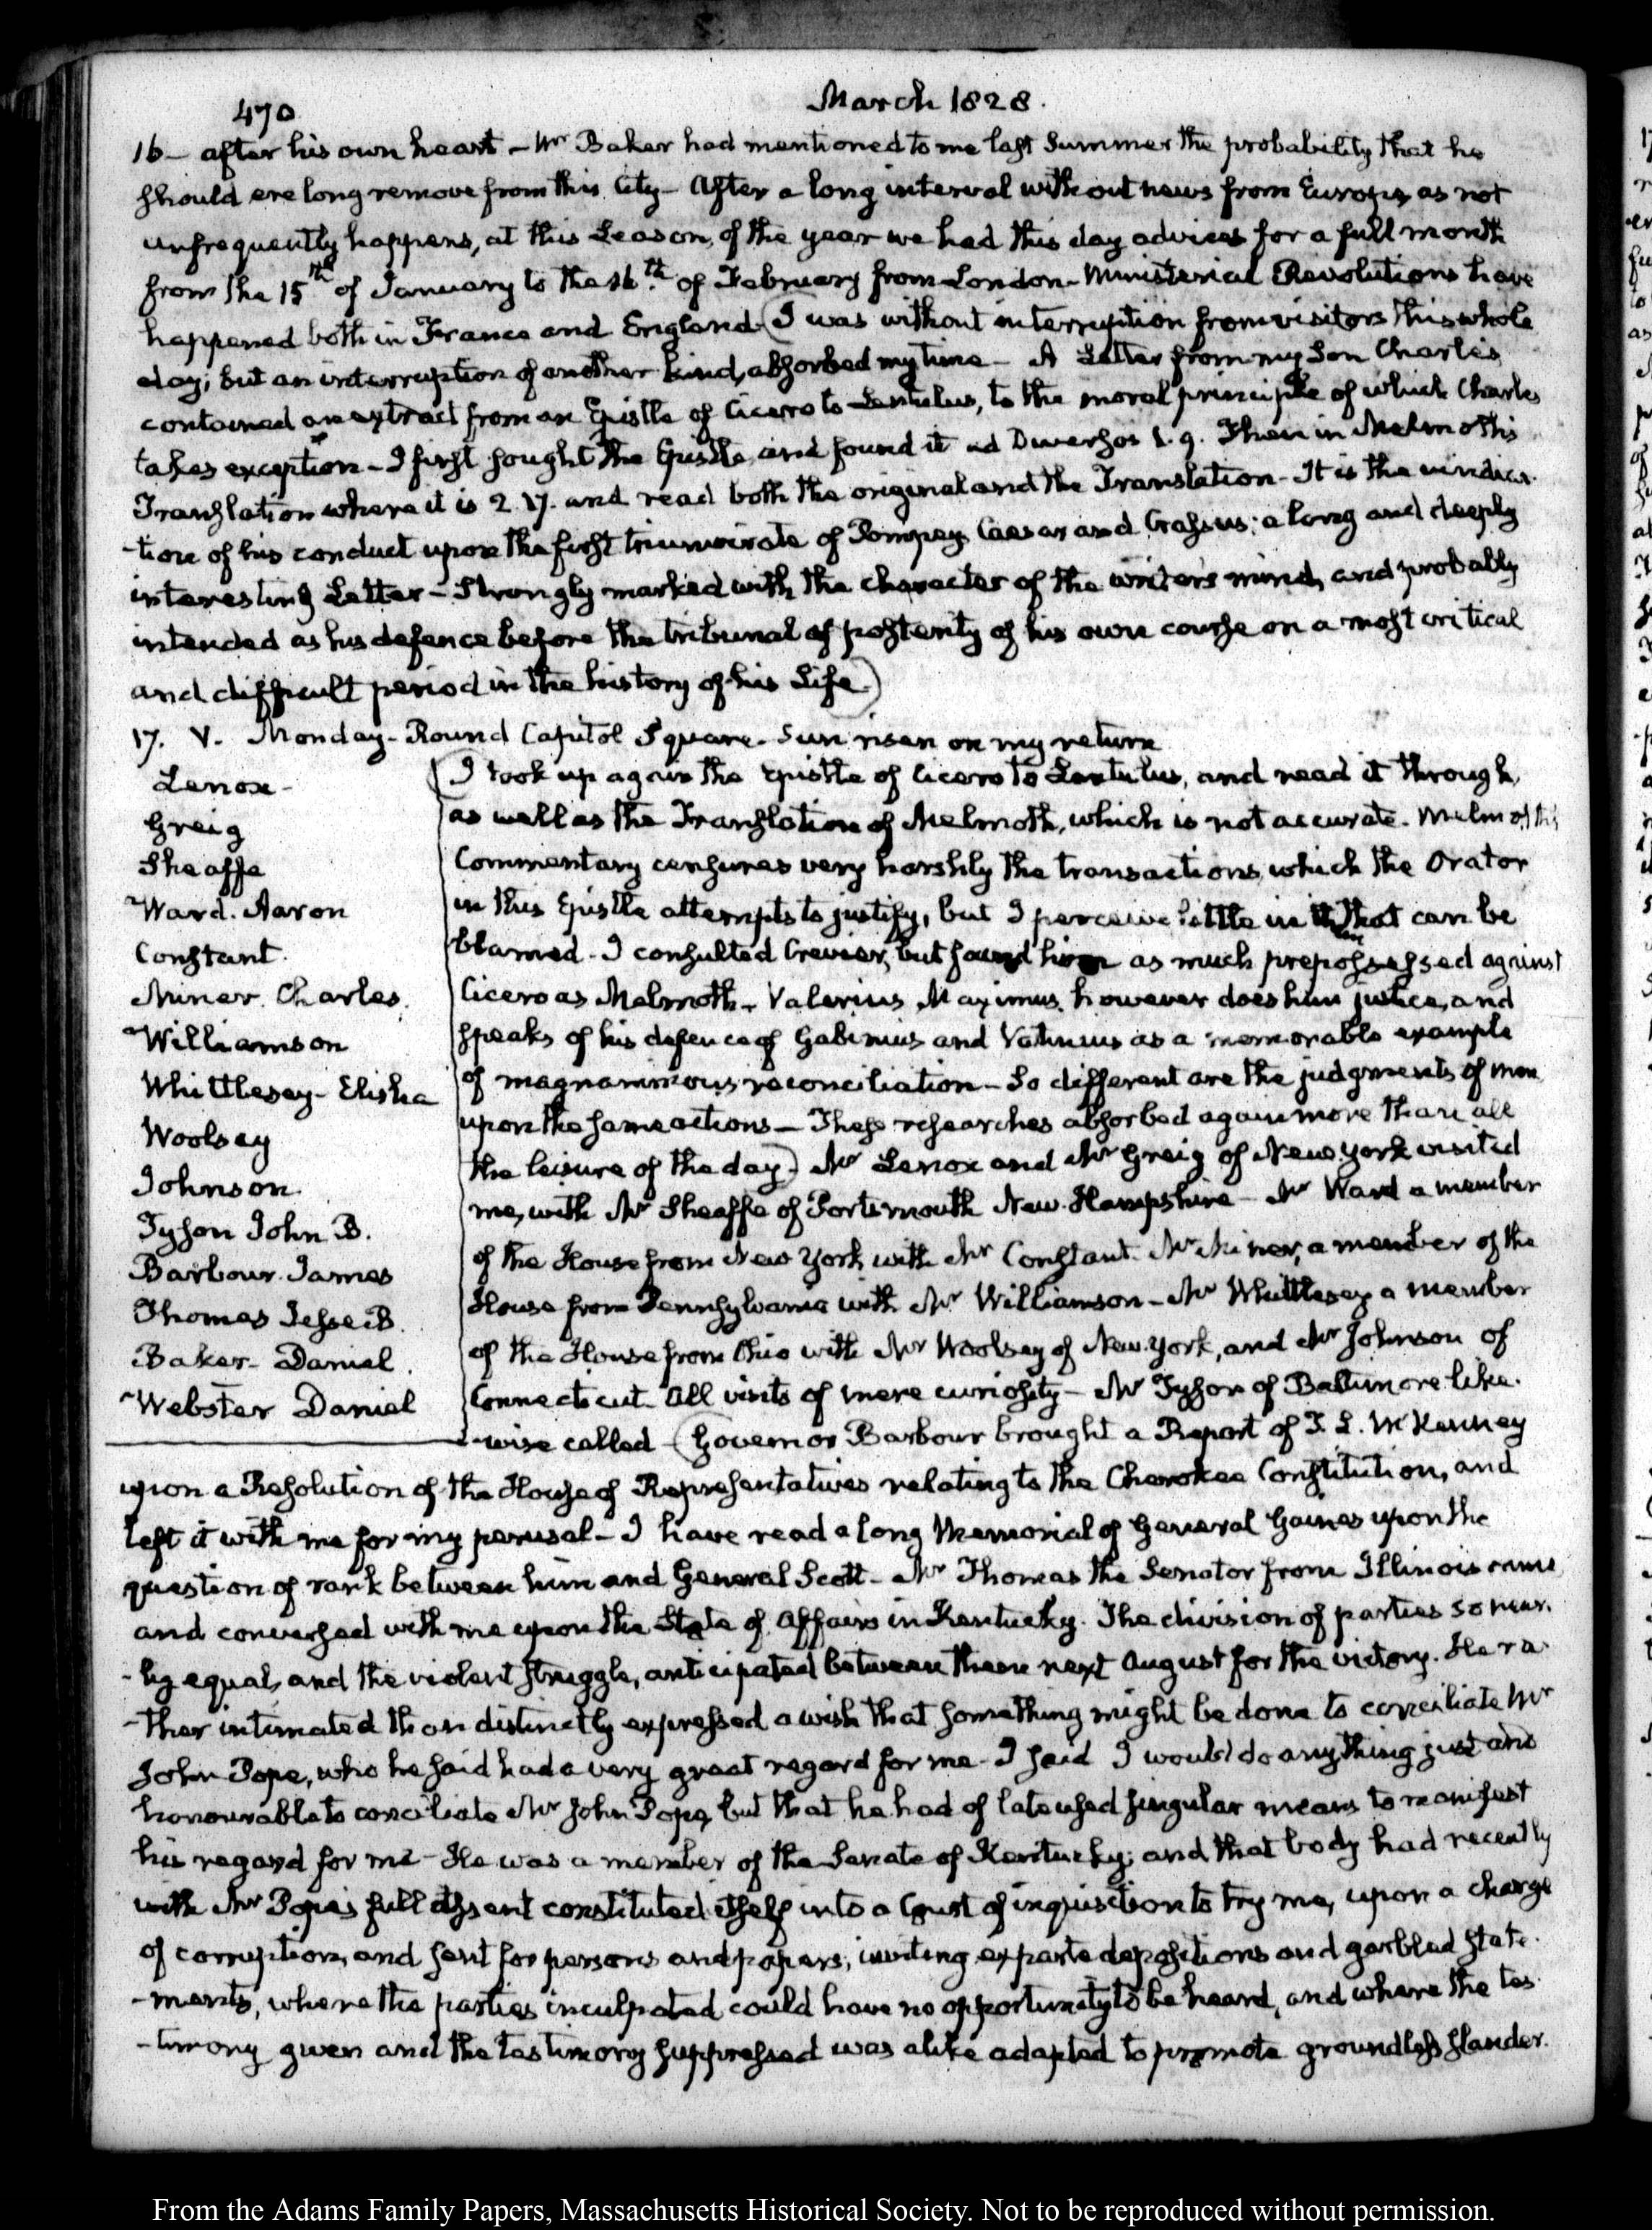 470
March 1828.
16 — after his own heart — Mr Baker had mentioned to me last Summer the probability that he
should ere long remove from this City — After a long interval without news from Europe, as not
unfrequently happens, at this Season, of the year we had this day advices for a full month
from the 15th of January to the 16th of February from London — Ministerial Revolutions have
happened both in France and England (I was without interruption from visitors this whole
day; but an interruption of another kind, absorbed my time — A Letter from my Son Charles,
contained an extract from an Epistle of Cicero to Lentulus, to the moral principle of which Charles
takes exception — I first sought the Epistle, and found it ad Diversos 1. 9. Then in Melmoth's
Translation where it is 2. 17. and read both the original and the Translation — It is the vindica-
-tion of his conduct upon the first triumvirate of Pompey Caesar and Crassus; a long and deeply
interesting Letter — Strongly marked with the character of the writer's mind, and probably
intended as his defence before the tribunal of posterity of his own course on a most critical
and difficult period in the history of his Life.)
17. V. Monday — Round Capitol Square — Sun risen on my return
Lenox —
Greig
Sheaffe
Ward. Aaron
Constant.
Miner. Charles.
Williamson
Whittlesey — Elisha
Woolsey
Johnson
Tyson John B.
Barbour. James
Thomas Jesse B.
Baker — Daniel.
Webster Daniel
(I took up again the Epistle of Cicero to Lentulus, and read it through,
as well as the Translation of Melmoth, which is not accurate. Melmoth's
Commentary censures very harshly the transactions, which the Orator
in this Epistle attempts to justify, but I perceive little in it that can be
blamed — I consulted Crevier, but found him as much prepossessed against
Cicero as Melmoth — Valerius Maximus, however does him justice, and
speaks of his defence of Gabinius and Vatinius as a memorable example
of magnanimous reconciliation — So different are the judgments of men
upon the same actions — These researches absorbed again more than all
the leisure of the day.) Mr Lenox and Mr Greig of New York visited
me, with Mr Sheaffe of Portsmouth New-Hampshire — Mr Ward a member
of the House from New York with Mr Constant. Mr Miner, a member of the
House from Pennsylvania with Mr Williamson — Mr Whittlesey a member
of the House from Ohio with Mr Woolsey of New York, and Mr Johnson of
Connecticut. All visits of mere curiosity — Mr Tyson of Baltimore like-
-wise called — (Governor Barbour brought a Report of T. L. McKenney
upon a Resolution of the House of Representatives relating to the Cherokee Constitution, and
left it with me for my perusal — I have read a long Memorial of General Gaines upon the
question of rank between him and General Scott — Mr Thomas the Senator from Illinois came
and conversed with me upon the State of Affairs in Kentucky. The division of parties so near-
-ly equal, and the violent struggle, anticipated between them next August for the victory. He ra-
-ther intimated than distinctly expressed a wish that something might be done to conciliate Mr
John Pope, who he said had a very great regard for me — I said I would do any thing just and
honourable to conciliate Mr John Pope, but that he had of late used singular means to manifest
his regard for me — He was a member of the Senate of Kentucky; and that body had recently
with Mr Pope's full assent constituted itself into a Court of inquisition to try me, upon a charge
of corruption, and sent for persons and papers; inviting exparte depositions and garbled state-
-ments, where the parties inculpated could have no opportunity to be heard, and where the tes-
-timony given and the testimony suppressed was alike adapted to promote groundless slander.
From the Adams Family Papers, Massachusetts Historical Society. Not to be reproduced without permission.